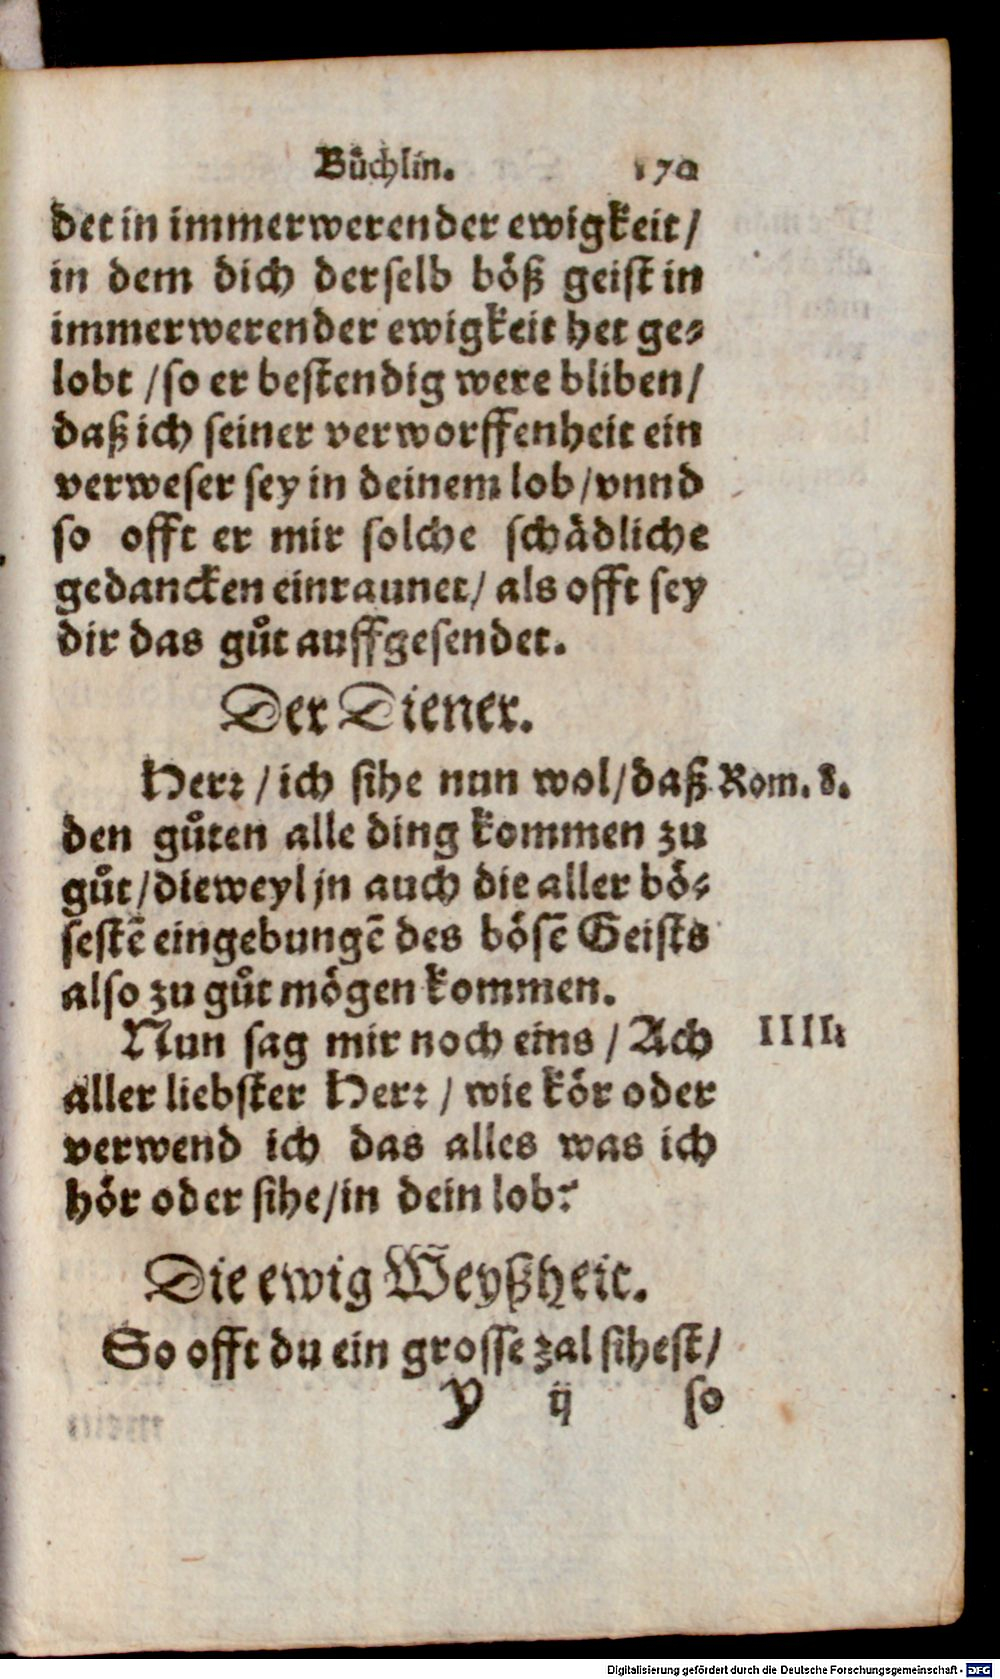 Bůchlin. 170
det in immerwerender ewigkeit/
in dem dich derselb böß geist in
immerwerender ewigkeit het ge⸗
lobt /so er bestendig were bliben/
daß ich seiner verworffenheit ein
verweser sey in deinem lob/vnnd
so offt er mir solche schädliche
gedancken einraunet/ als offt sey
dir das gůt auffgesendet.
Der Diener.
Herr /ich sihe nun wol/daß Rom. 8.
den gůten alle ding kommen zu
gůt/dieweyl jn auch die aller bö⸗
sestē eingebungē des bösē Geists
also zu gůt mögen kommen.
Nun sag mir noch eins / Ach IIII.
aller liebster Herr / wie kör oder
verwend ich das alles was ich
hör oder sihe/in dein lob?
Die ewig Weyßheit.
So offt du ein grosse zal sihest/
Y ij so
Digitalisierung gefördert durch die Deutsche Forschungsgemeinschaft - DFG